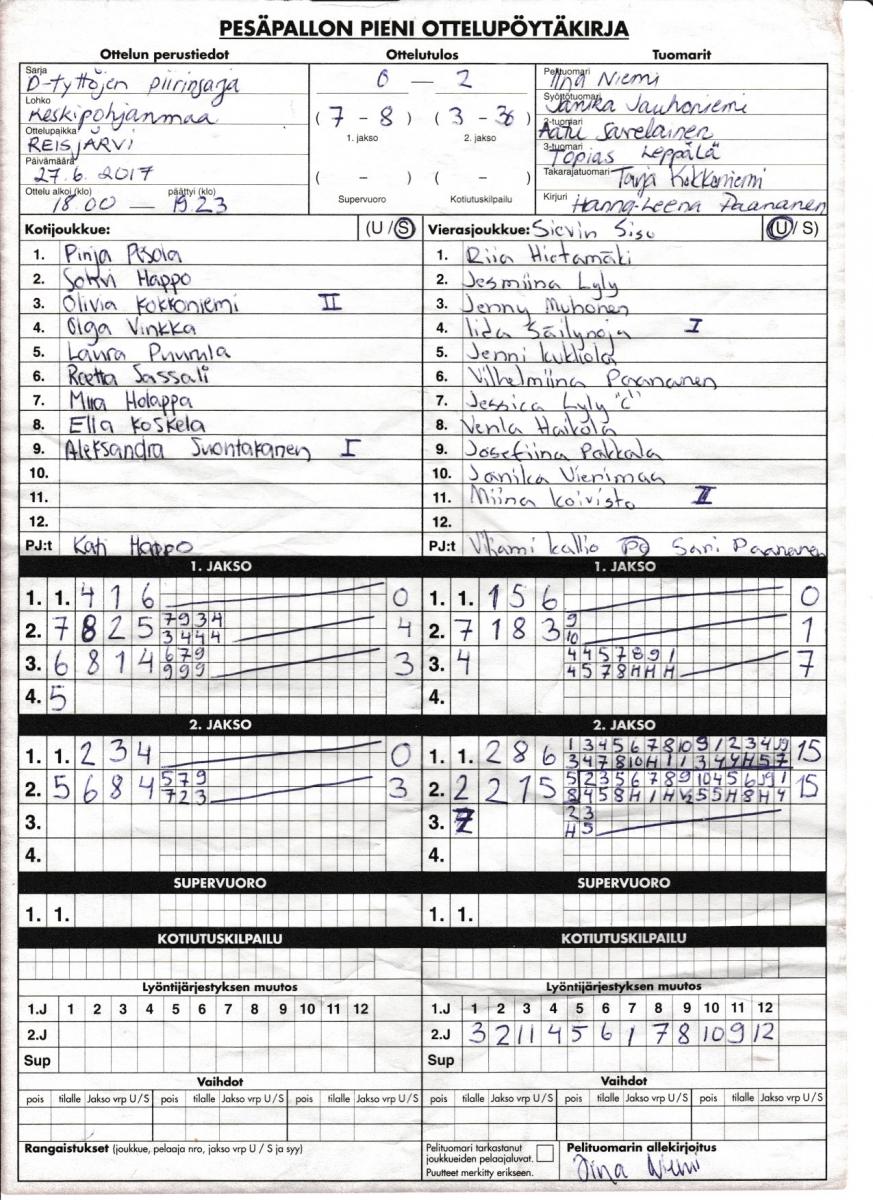 PESÄPALLON PIENI OTTELUPÖYTÄKIRJA
Ottelun perustiedot
Ottelutulos
Tuomarit
Sarja
D-tyttöjen piirinsarja
Lohko
Keskipohjanmaa
Ottelupaikka
REISJÄRVI
Päivämäärä
27.6.2017
Ottelu alkoi (klo) päättyi (klo)
18.00 — 19.23
0 — 2
( 7 - 8 ) ( 3 - 30 )
1. jakso 2. jakso
( - ) ( - )
Supervuoro Kotiutuskilpailu
Pelituomari Iina Niemi
Syöttötuomari Janika Jauhoniemi
2-tuomari Aatu Savelainen
3-tuomari Topias Leppälä
Takarajatuomari Tarja Kokkoniemi
Kirjuri Hanna-Leena Paananen
Kotijoukkue: (U / S)
1. Pinja
2. Happo
3. Olivia Kokkoniemi II
4. Olga Vinkka
5. Laura Puurula
6. Reetta Sassali
7. Miia Holappa
8. Ella Koskela
9. Aleksandra Suontakanen I
10.
11.
12.
PJ:t Kati Happo
Vierasjoukkue: Sievin Sisu (U / S)
1. Riia Hietamäki
2. Jesmiina Lyly
3. Jenny Muhonen
4. Iida Säilynoja I
5. Jenni Kukkola
6. Vilhelmiina Paananen
7. Jessica Lyly "C"
8. Venla Haikola
9. Josefiina Pakkala
10. Janika Vierimaa
11. Miina Koivisto II
12.
PJ:t Viljami Kallio PJ Sari Paananen
1. JAKSO
1. 1. 4 1 6 0
2. 7 8 2 5 7 9 3 4 4
3 4 4 4
3. 6 8 1 4 6 7 9 3
9 9 9
4. 5
1. JAKSO
1. 1. 1 5 6 0
2. 7 1 8 3 9 1
10
3. 4 4 4 5 7 8 9 1 7
4 5 7 8 H H H
4.
2. JAKSO
1. 1. 2 3 4 0
2. 5 6 8 4 5 7 9 3
7 2 3
3.
4.
2. JAKSO
1. 1. 2 8 6 1 3 4 5 6 7 8 10 9 1 2 3 4 15
3 4 7 8 10 H 1 1 3 4 4 H 5 7
2. 2 2 1 5 5 2 3 5 6 7 8 9 10 4 5 6 1 15
8 4 5 8 H 1 H 5 5 H 8 H 4
3. 7 2 3
H 5
4.
SUPERVUORO
1. 1.
SUPERVUORO
1. 1.
KOTIUTUSKILPAILU
KOTIUTUSKILPAILU
Lyöntijärjestyksen muutos
1.J 1 2 3 4 5 6 7 8 9 10 11 12
2.J
Sup
Lyöntijärjestyksen muutos
1.J 1 2 3 4 5 6 7 8 9 10 11 12
2.J 3 2 11 4 5 6 1 7 8 10 9 12
Sup
Vaihdot
pois tilalle Jakso vrp U / S pois tilalle Jakso vrp U / S pois tilalle Jakso vrp U / S
Vaihdot
pois tilalle Jakso vrp U / S pois tilalle Jakso vrp U / S pois tilalle Jakso vrp U / S
Rangaistukset (joukkue, pelaaja nro, jakso vrp U / S ja syy)
Pelituomari tarkastanut
joukkueiden pelaajaluvat.
Puutteet merkitty erikseen.
Pelituomarin allekirjoitus
Iina Niemi